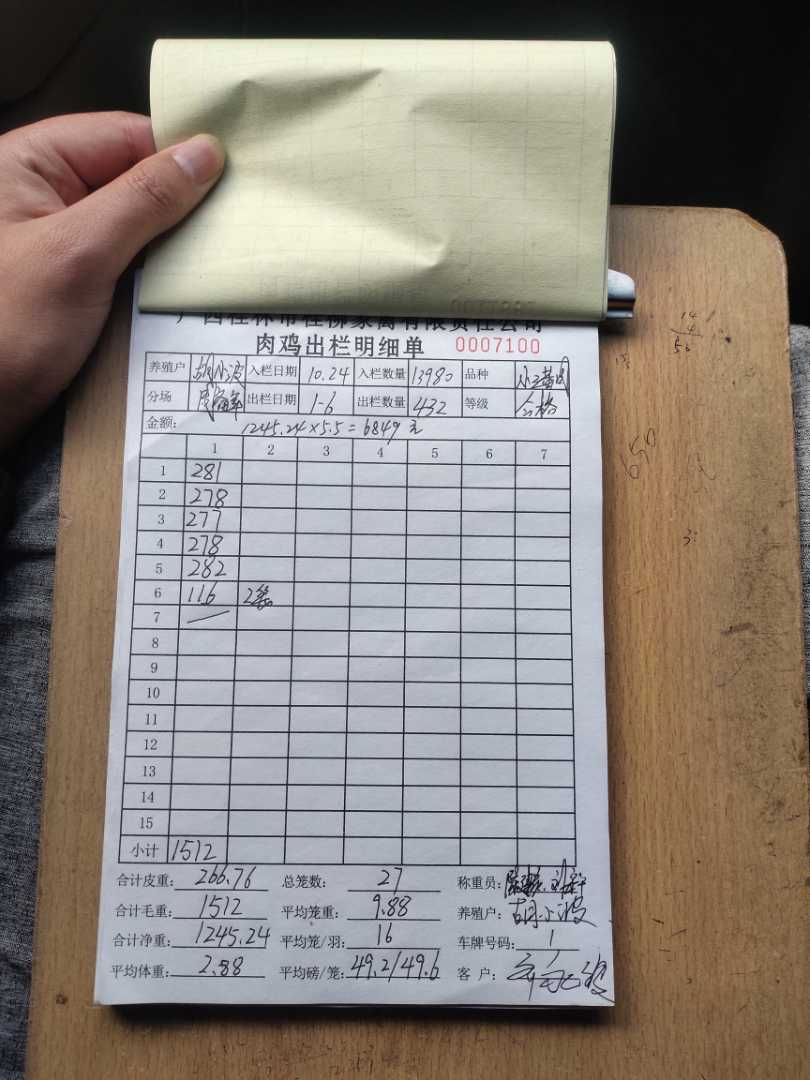 广西桂林市桂柳家禽有限责任公司
肉鸡出栏明细单 0007100
养殖户 胡小波 入栏日期 10.24 入栏数量 13980 品种
分场 出栏日期 1-6 出栏数量 432 等级 合格
金额: 1245.24×5.5=6849元
1 2 3 4 5 6 7
1 281
2 278
3 277
4 278
5 282
6 116 2笼
7
8
9
10
11
12
13
14
15
小计 1512
合计皮重: 266.76 总笼数: 27 称重员:
合计毛重: 1512 平均笼重: 9.88 养殖户: 胡小波
合计净重: 1245.24 平均笼/羽: 16 车牌号码: 1
平均体重: 2.88 平均磅/笼: 49.2/49.6 客户:
14
4
56
650